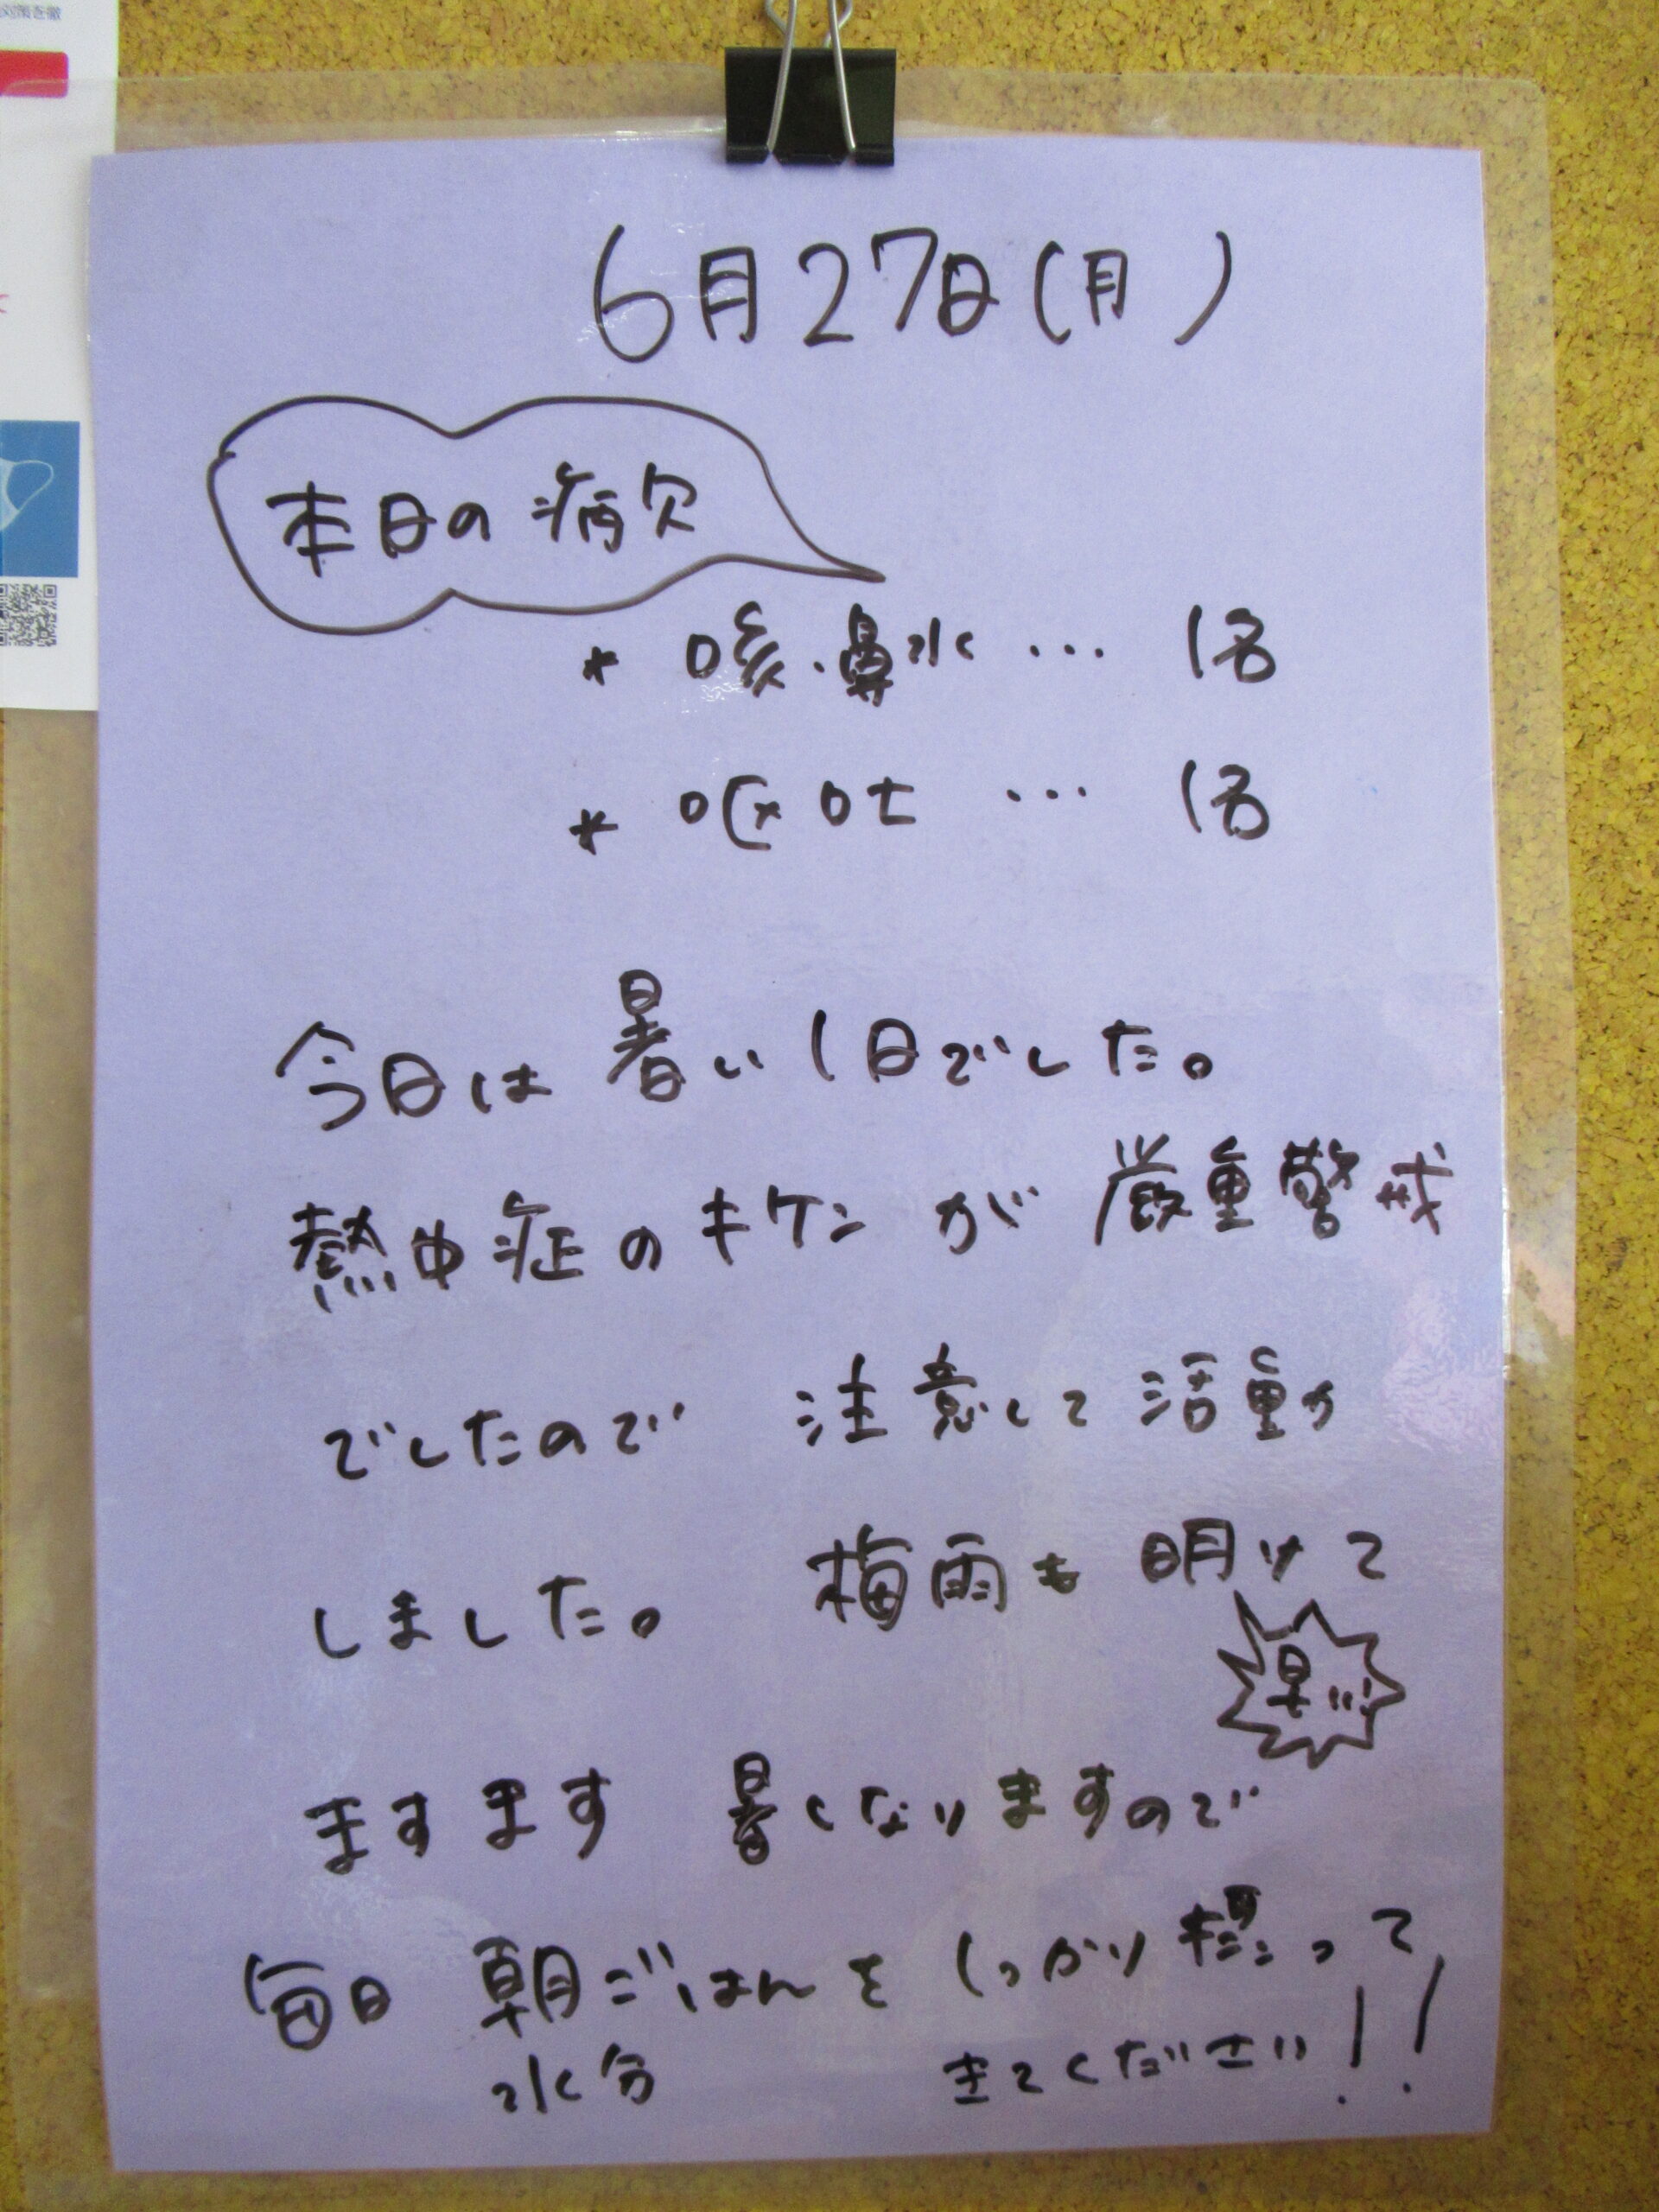 対策を徹
6月27日(月)
本日の病欠
* 咳・鼻水 … 1名
* 嘔吐 … 1名
今日は暑い1日でした。
熱中症のキケンが厳重警戒
でしたので 注意して活動
しました。 梅雨も明けて
早…
ますます 暑くなりますので
毎日 朝ごはんを しっかり摂って
水分 きてください!!